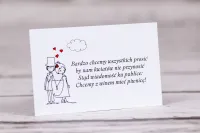 Bardzo chcemy wszystkich prosić
by nam kwiatów nie przynosić
Stąd wiadomość ku publice:
Chcemy z winem mieć piwnicę!